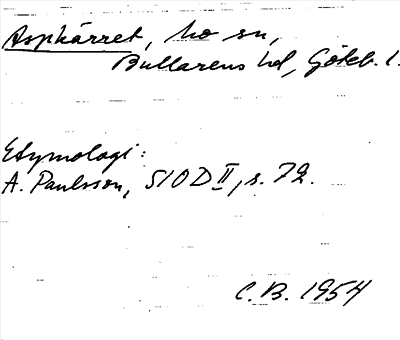 Aspkärret, ho sn,
Bullarens hd, Göteb. l.
Etymologi:
A. Paulsson, SIOD II, s. 72.
C.B. 1954